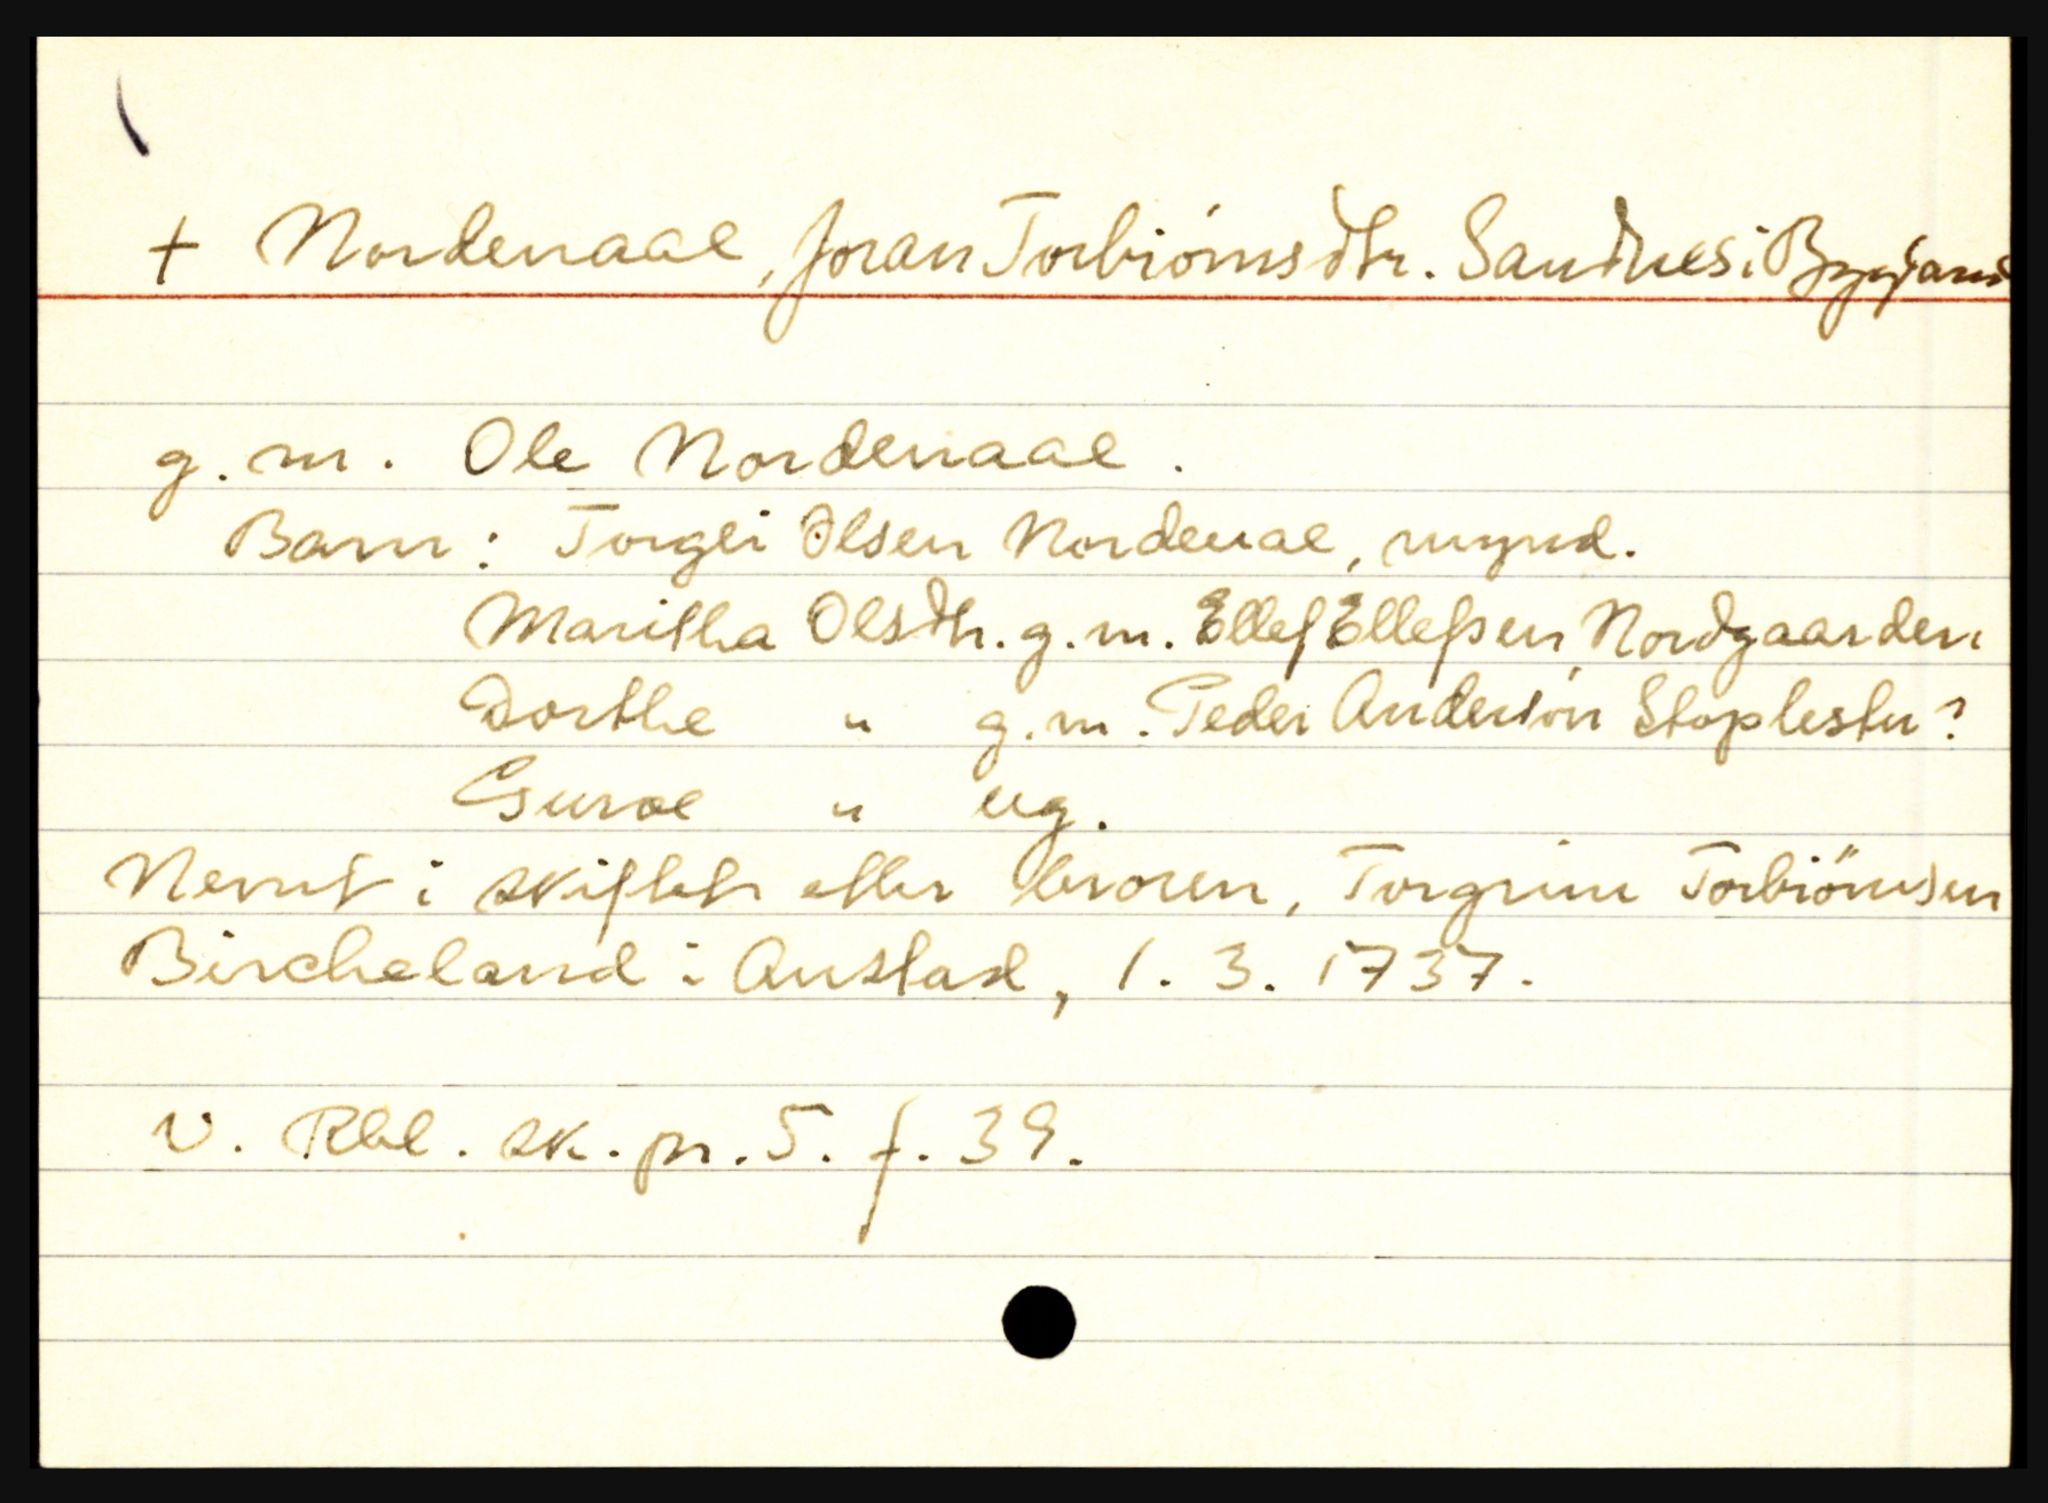 + Nordenaae, Joran Torbiørnsdtr. Sandnes i Bygland
g. m. Ole Nordenaae.
Barn: Torgei Olsen Nordenae, mynd.
Maritha Olsdtr. g. m. Ellef Ellefsen, Nordgaarden
Dorthe " g. m. Peder Andersøn Stoplestu?
Guroe " ug.
Nevnt i skiftet etter broren, Torgrim Torbiörnsen
Bircheland i Austad, 1. 3. 1737.
V. Rbl. sk. pr. 5. f. 39.